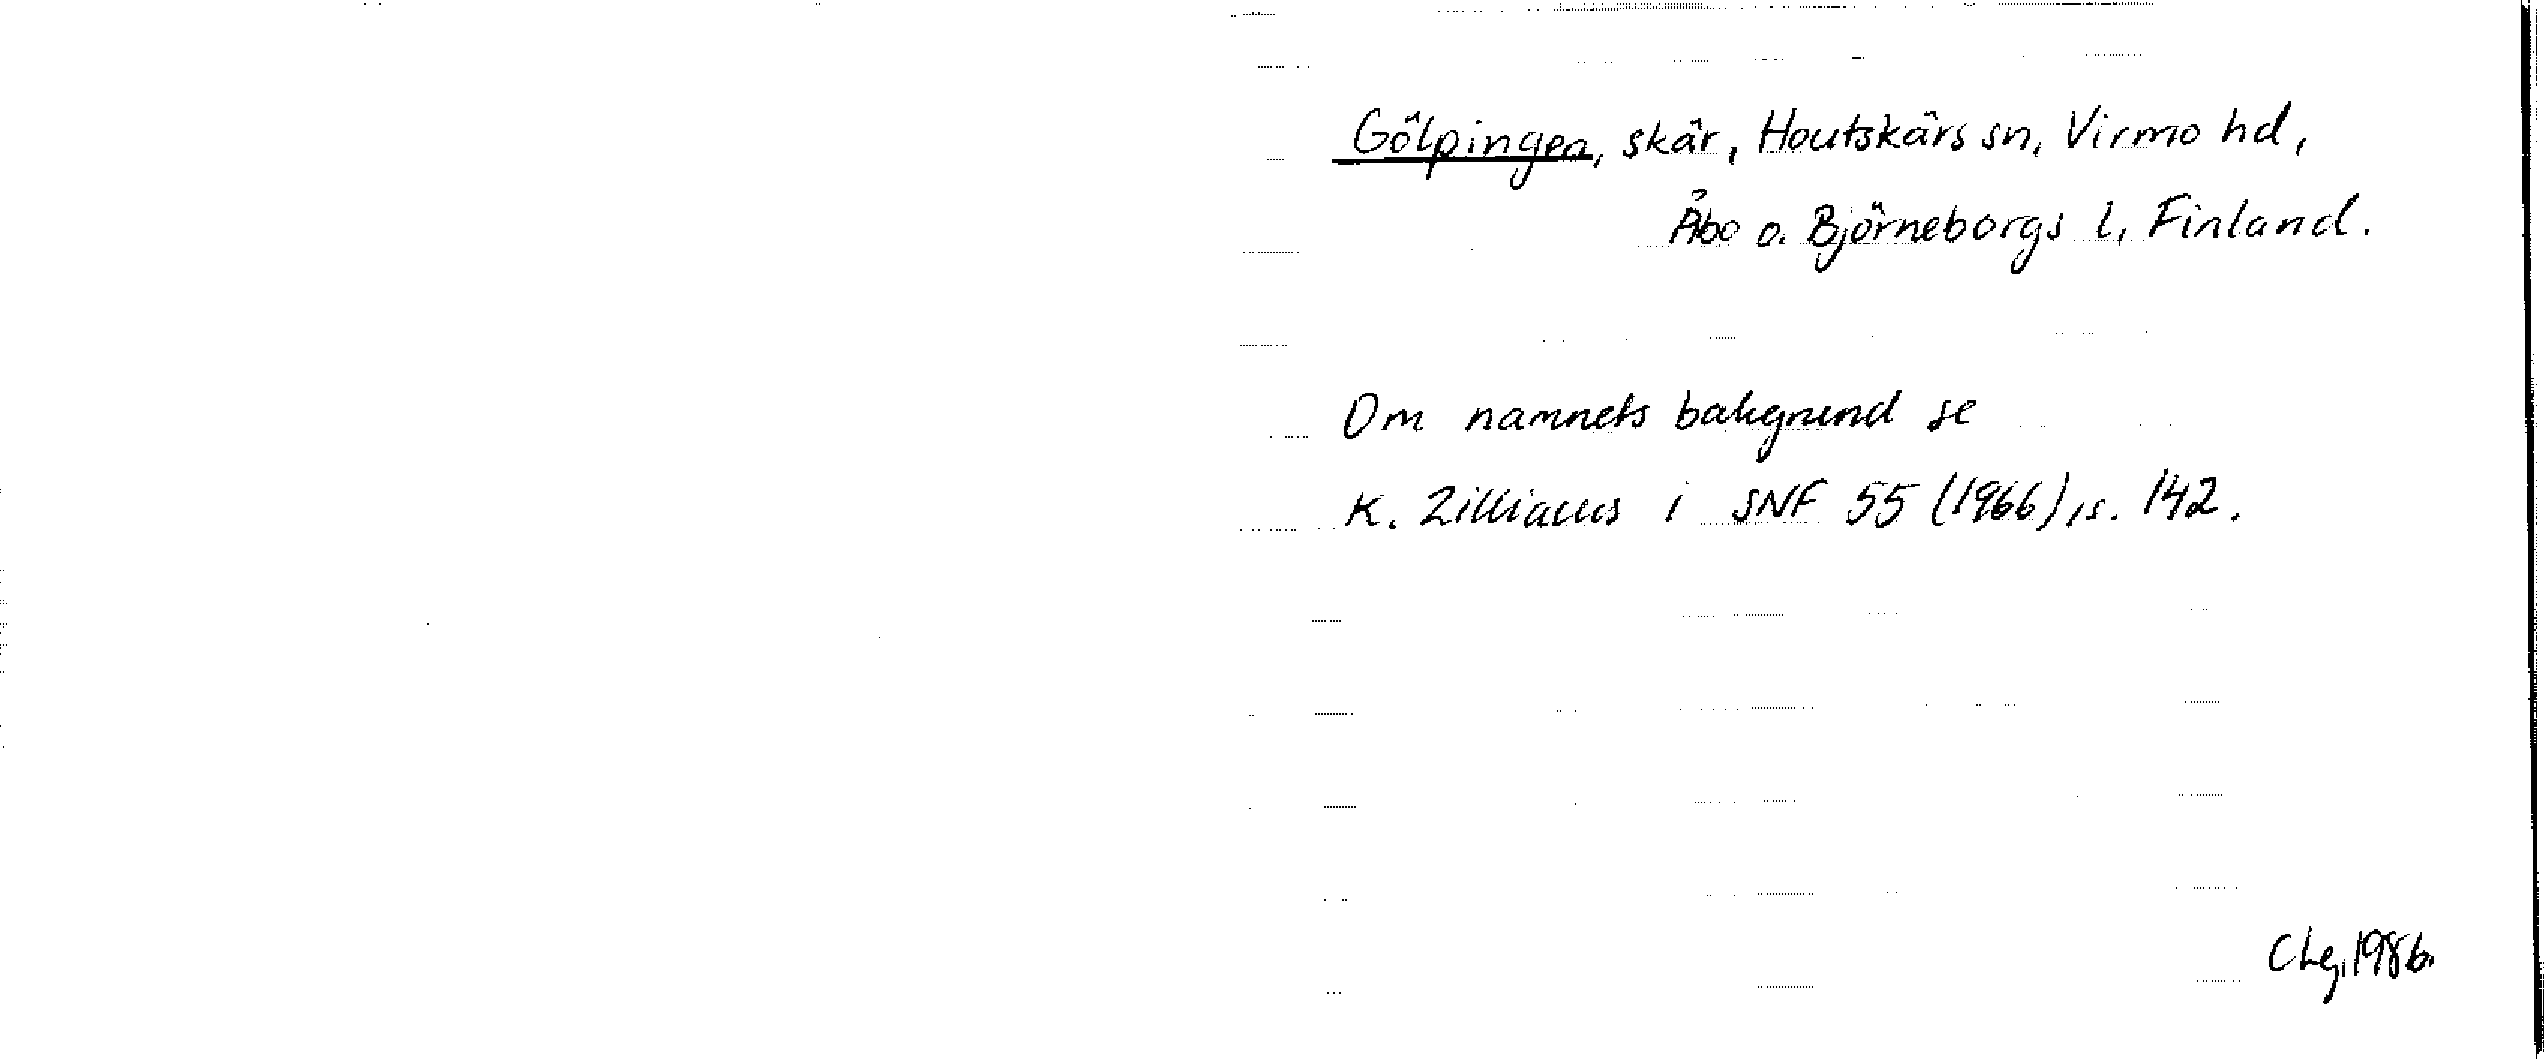 Gölpingen, skär, Houtskärs sn, Virmo hd,
Åbo o. Björneborgs l, Finland.
Om namnets bakgrund se
K. Zilliacus i SNF 55 (1966), s. 142.
CLg, 1986.